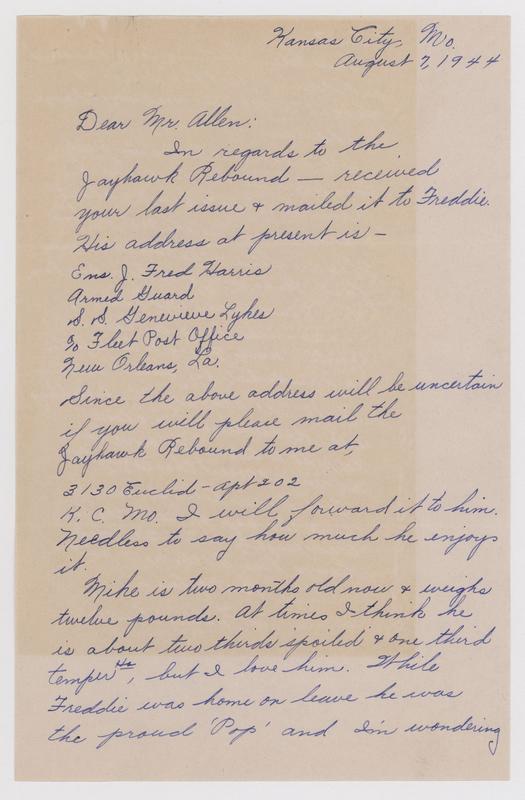 Kansas City, Mo.
August 7, 1944
Dear Mr. Allen:
In regards to the
Jayhawk Rebound — received
your last issue & mailed it to Freddie.
His address at present is —
Ens. J. Fred Harris
Armed Guard
S. S. Genevieve Lykes
c/o Fleet Post Office
New Orleans, La.
Since the above address will be uncertain
if you will please mail the
Jayhawk Rebound to me at,
3130 Euclid - Apt 202
K. C. Mo. I will forward it to him.
Needless to say how much he enjoys
it.
Mike is two months old now & weighs
twelve pounds. At times I think he
is about two thirds spoiled & one third
temper, but I love him. While
Freddie was home on leave he was
the proud 'Pop' and I'm wondering